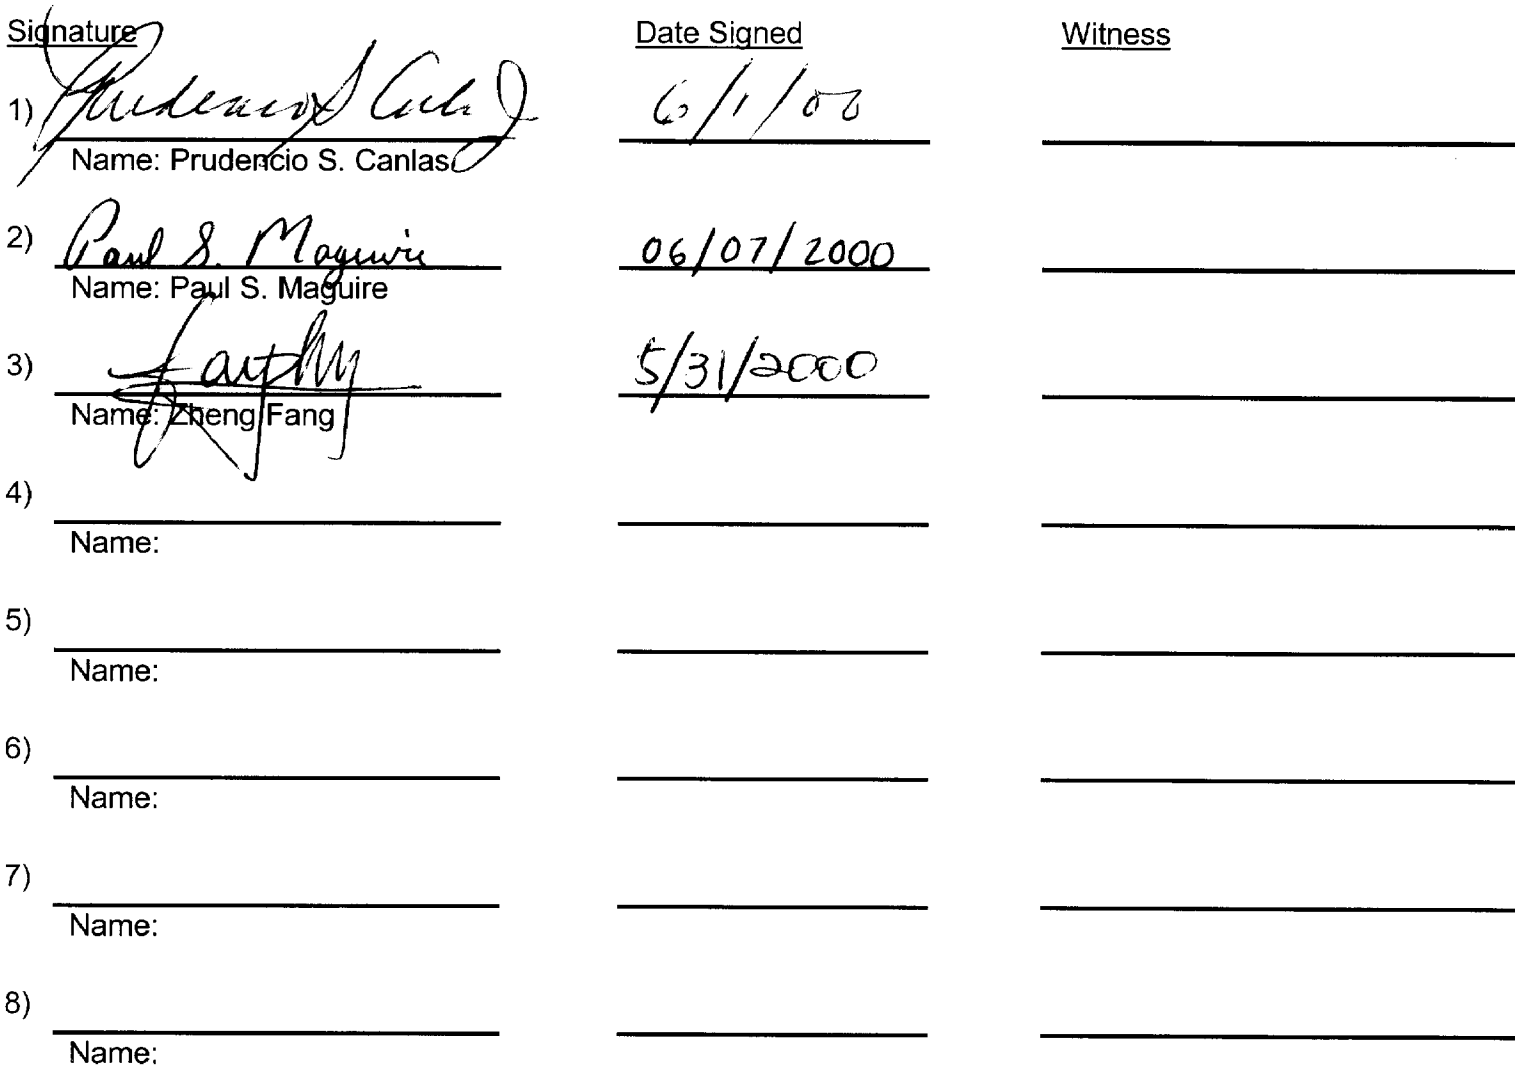 Signature Date Signed Witness
1) Prudencio S Canlas J 6/1/00
Name: Prudencio S. Canlas
2) Paul S. Maguire 06/07/2000
Name: Paul S. Maguire
3) 5/31/2000
Name: Zheng Fang
4)
Name:
5)
Name:
6)
Name:
7)
Name:
8)
Name: